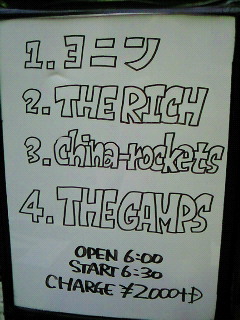 1. ヨニン
2. THE RICH
3. china-rockets
4. THE GAMPS
OPEN 6:00
START 6:30
CHARGE ¥2000+D